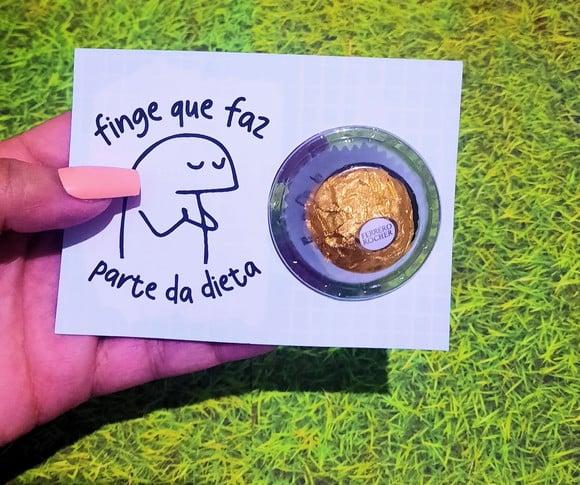 finge que faz
parte da dieta
FERRERO
ROCHER